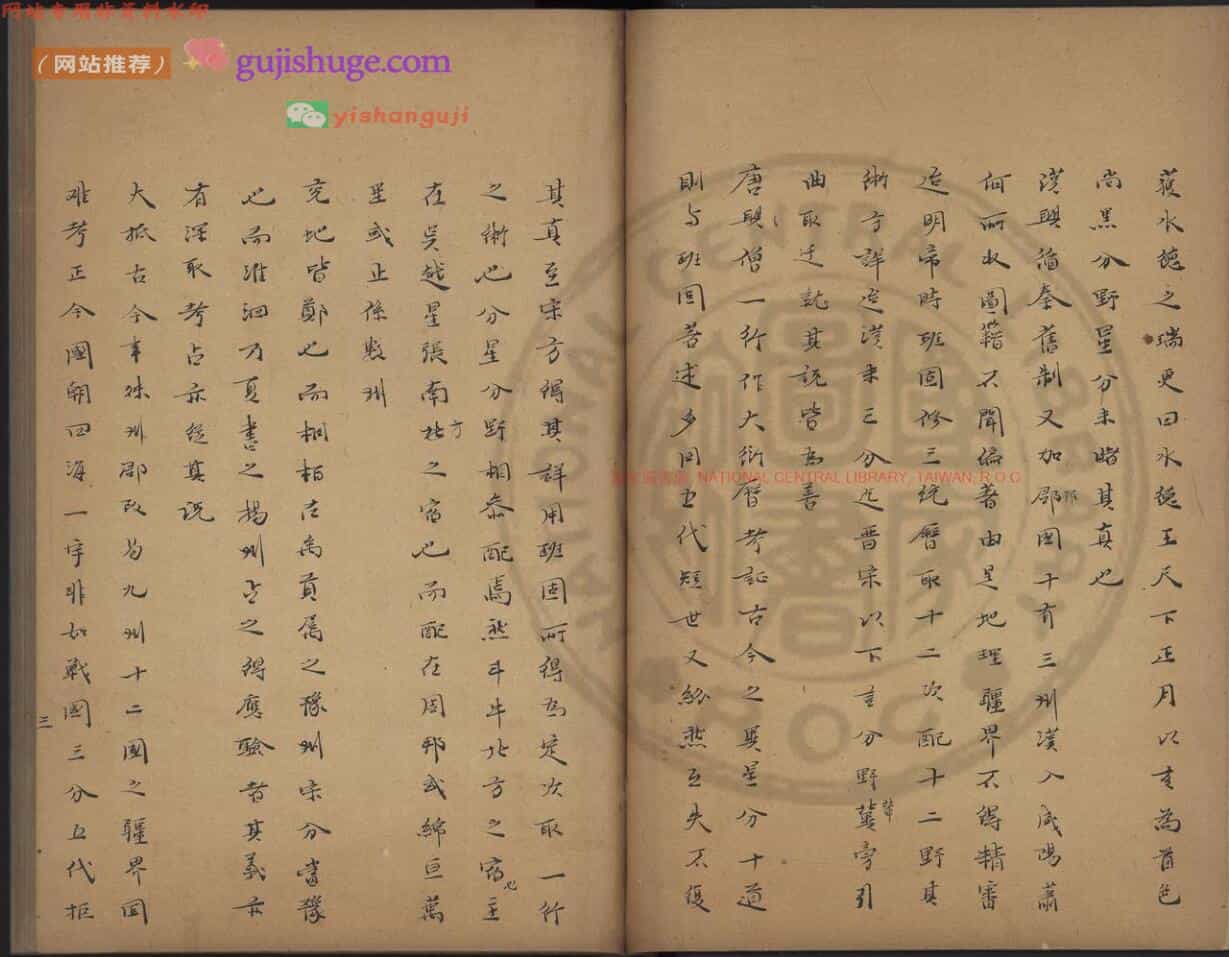 网站专用非资料水印
（网站推荐） gujishuge.com
yishanguji
獲水德之瑞更曰水德王天下正月以亥為首色
尚黑分野星分未暗其真也
漢興循秦舊制又加郡國十有三州漢入咸陽蕭
何所收圖籍不聞偏著由是地理疆界不得精審
迨明帝時班固修三統曆取十二次配十二野其
術方詳迨漢末三分迄晉宋以下言分野葢旁引
曲取过訛其說皆為善
唐興僧一行作大衍曆考証古今之異星分十道
則与班固若述多同五代短世又紛然互失不復
其真至宋方得其詳用班固所得為定次取一行
之術也分星分野相參配焉然斗牛北方之宿也主
在吳越星張南方之宿也而配在周邦或綿亘萬
里或止係数州
兗地皆鄭也而桐柏在禹貢属之豫州宋分當豫
也而淮泗乃夏書之揚州占之得應驗者其義亦
有深取考占亦從其説
大抵古今事殊州郡改为九州十二國之疆界固
难考正今國朝四海一宇非如戰國三分五代拒
三
NATIONAL CENTRAL LIBRARY, TAIWAN, R O C
NATIONAL CENTRAL LIBRARY
ROC